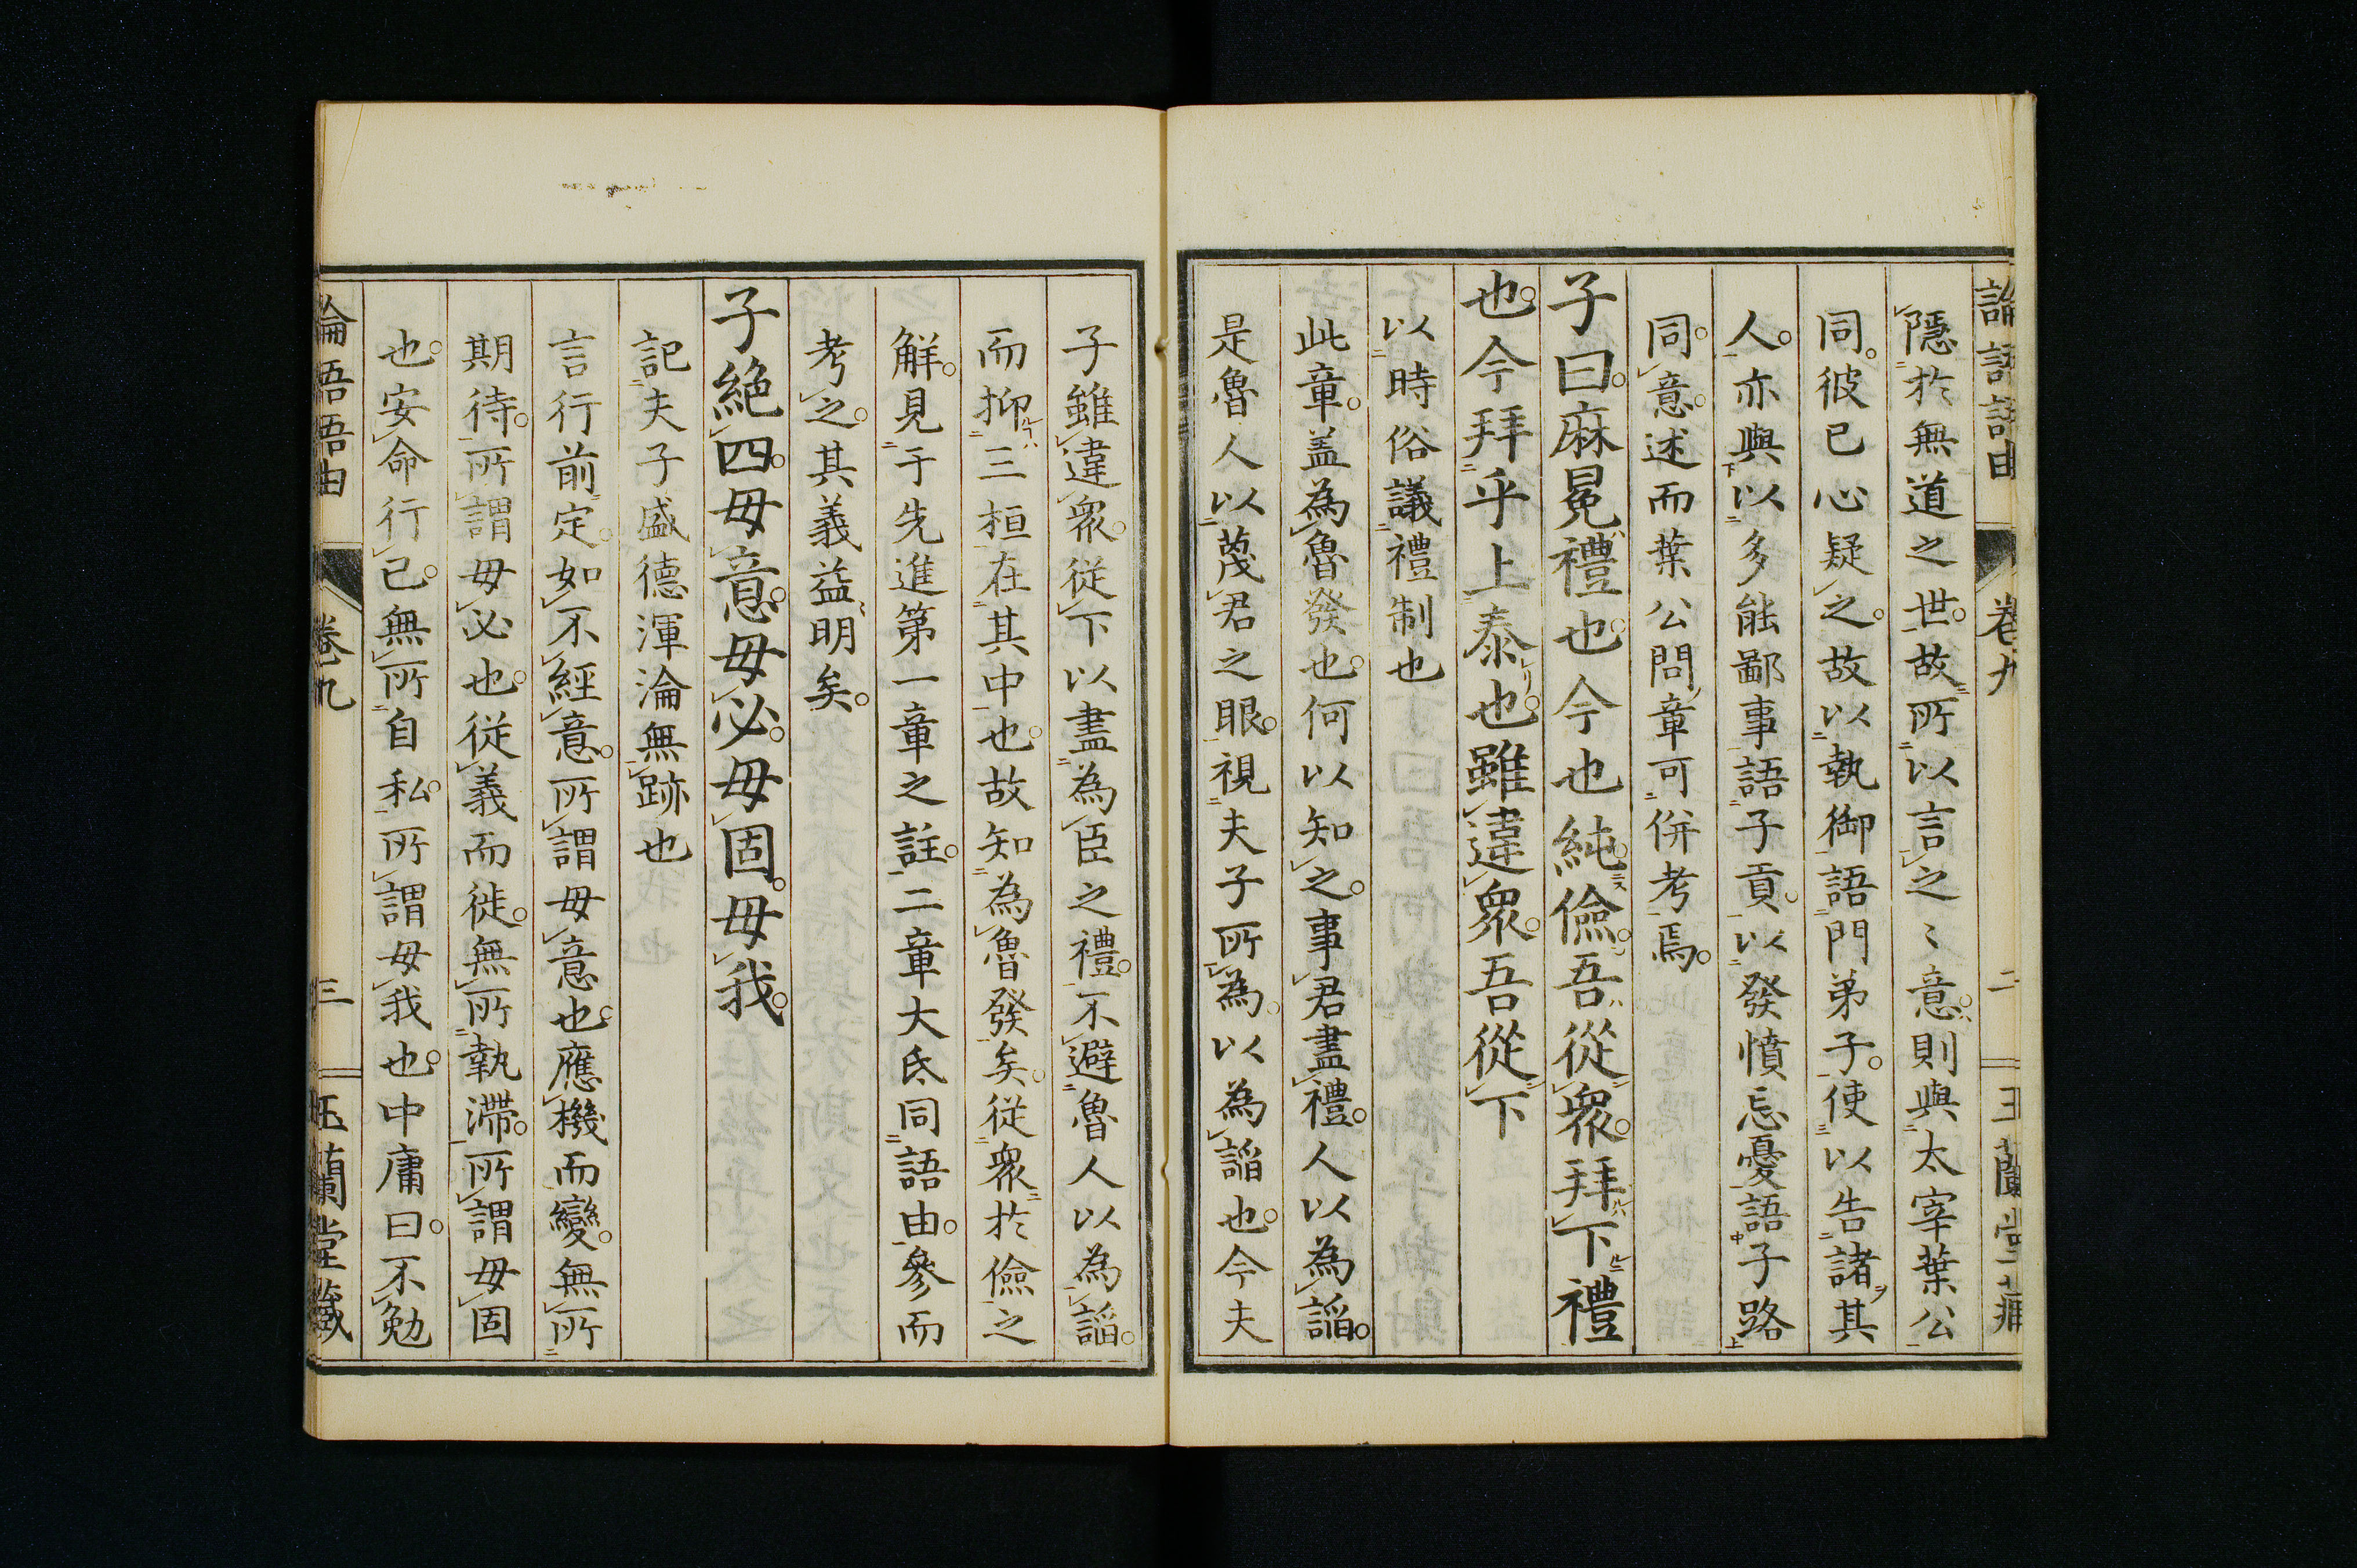 論語語由 卷九 二 玉蘭堂藏
隱於無道之世故所以言之〻意則與太宰葉公
同彼已心疑之故以執御語門弟子使以告諸其
人亦與以多能鄙事語子貢以發憤忘憂語子路
同意述而葉公問章可併考焉
子曰麻冕禮也今也純儉吾從衆拜下禮
也今拜乎上泰也雖違衆吾從下
以時俗議禮制也
此章盖為魯發也何以知之事君盡禮人以為謟
是魯人以蔑君之眼視夫子所為以為謟也今夫
子雖違衆從下以盡為臣之禮不避魯人以為謟
而抑三桓在其中也故知為魯發矣從衆於儉之
解見于先進第一章之註二章大氐同語由參而
考之其義益明矣
子絶四毋意毋必毋固毋我
記夫子盛德渾淪無跡也
言行前定如不經意所謂毋意也應機而變無所
期待所謂毋必也從義而徙無所執滯所謂毋固
也安命行己無所自私所謂毋我也中庸曰不勉
論語語由 卷九 三 玉蘭堂藏